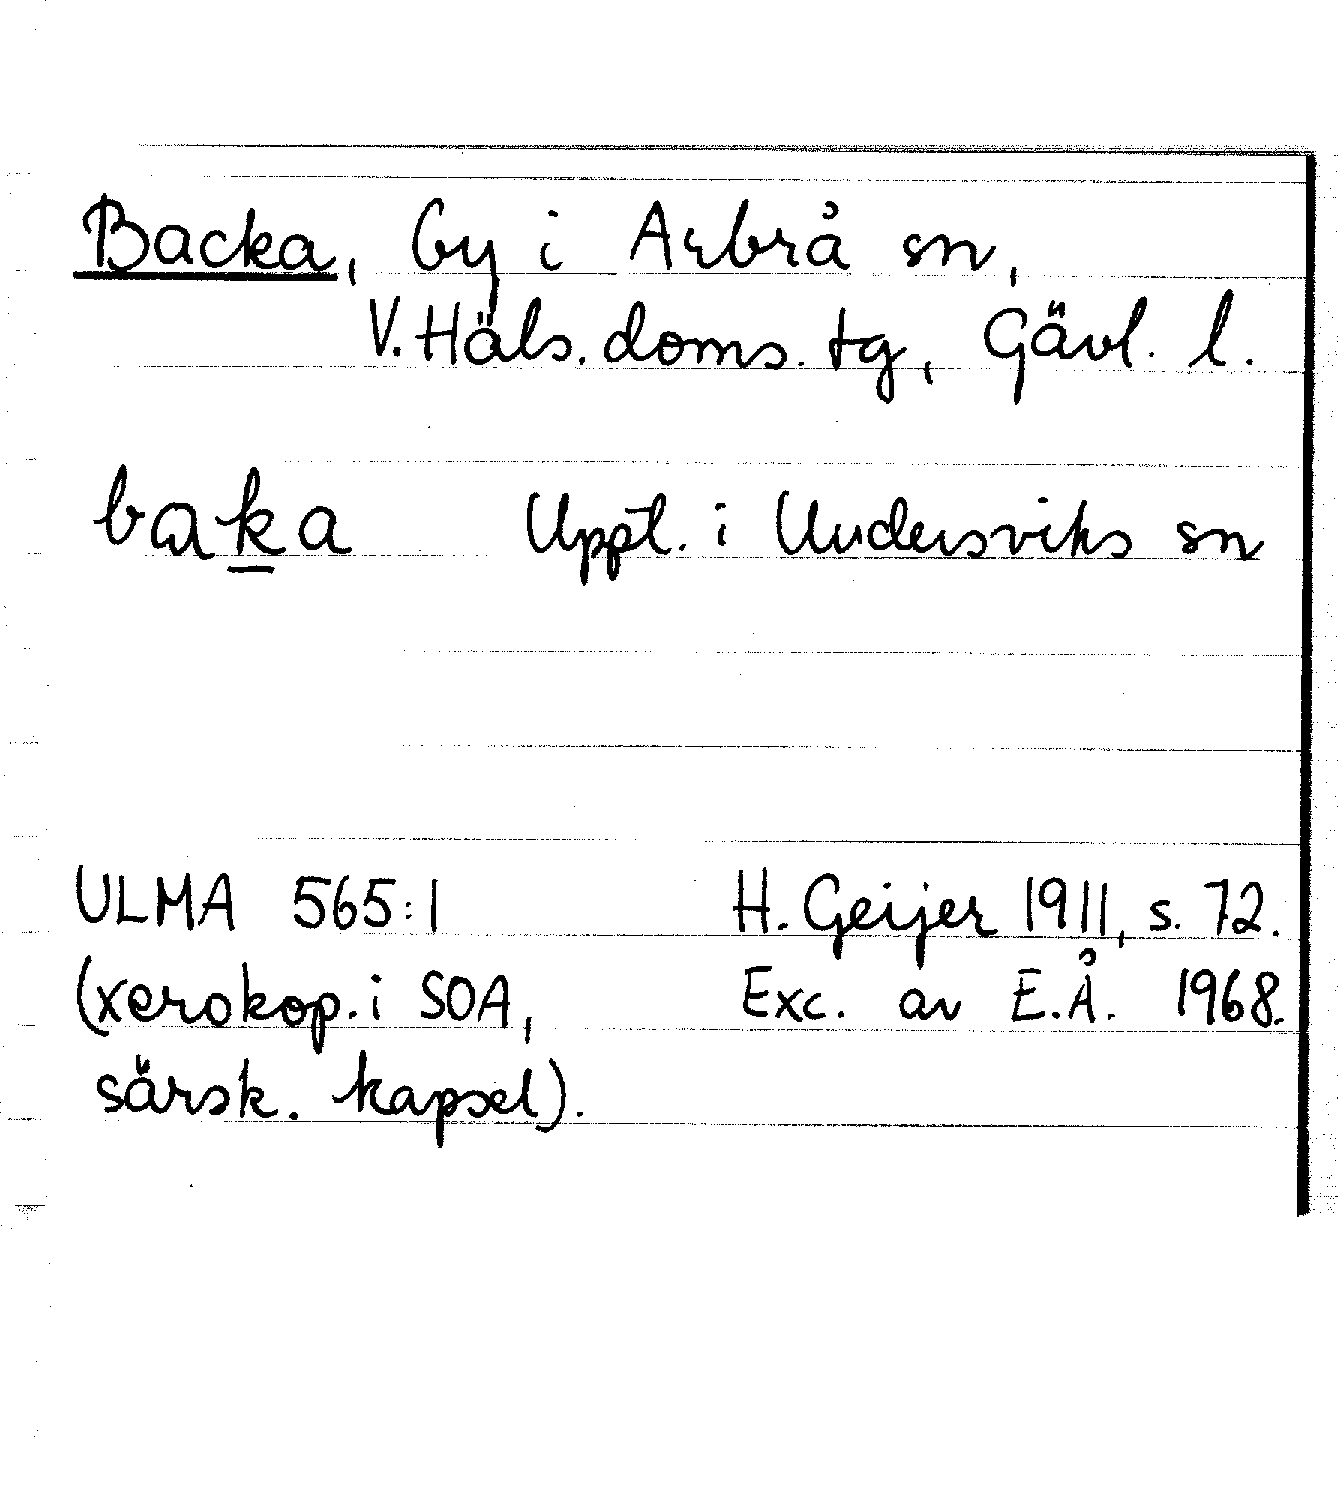 Backa, by i Arbrå sn,
V. Häls. doms. tg, Gävl. l.
baka Uppt. i Undersviks sn
ULMA 565:1 H. Geijer 1911, s. 72.
(xerokop. i SOA, Exc. av E.Å. 1968.
särsk. kapsel).